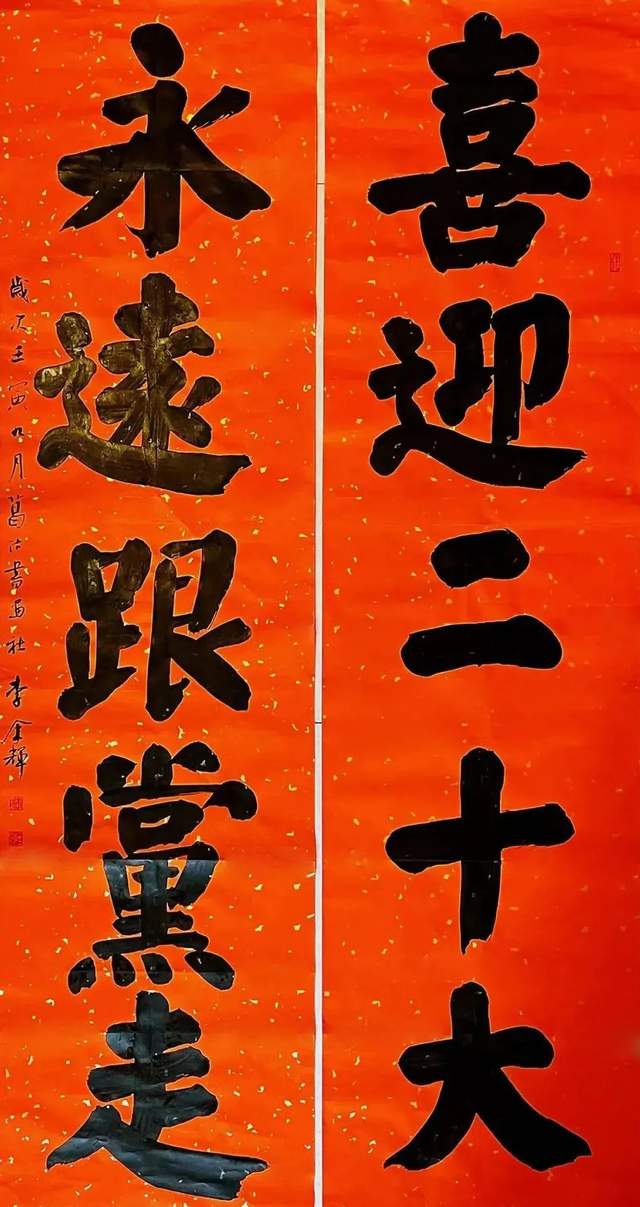 喜迎二十大
永遠跟黨走
歲次壬寅九月葛洪書畫社李金輝